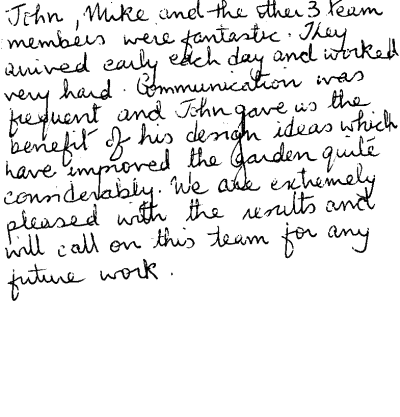 John, Mike and the other 3 team
members were fantastic. They
arrived early each day and worked
very hard. Communication was
frequent and John gave us the
benefit of his design ideas which
have improved the garden quite
considerably. We are extremely
pleased with the results and
will call on this team for any
future work.